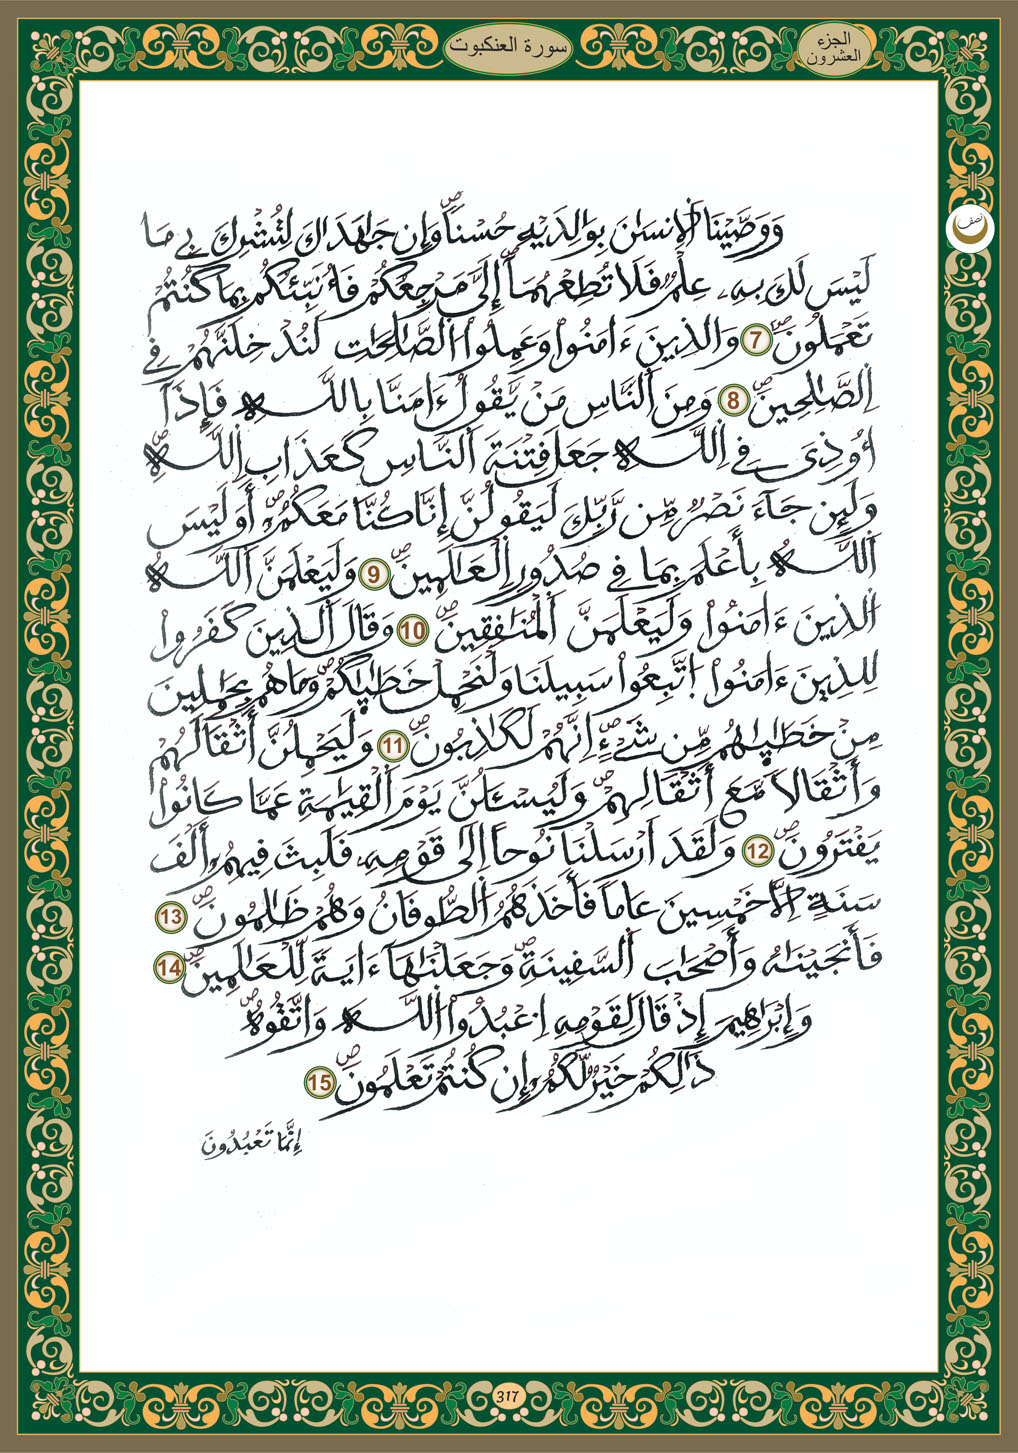 الجزء
العشرون
سورة العنكبوت
نصف
وَوَصَّيْنَا اَلْإِنسَٰنَ بِوَٰلِدَيْهِ حُسْناًۖ وَإِن جَٰهَدَاكَ لِتُشْرِكَ بِے مَا
لَيْسَ لَكَ بِهِۦ عِلْمٌ فَلَا تُطِعْهُمَاۖ إِلَيَّ مَرْجِعُكُمْ فَأُنَبِّئُكُم بِمَا كُنتُمْ
تَعْمَلُونَۖ 7 وَالذِينَ ءَامَنُواْ وَعَمِلُواْ اُلصَّٰلِحَٰتِ لَنُدْخِلَنَّهُمْ فِے
اِلصَّٰلِحِينَۖ 8 وَمِنَ اَلنَّاسِ مَنْ يَّقُولُ ءَامَنَّا بِاللَّهِ فَإِذَا
أُوذِيَ فِے اِللَّهِ جَعَلَ فِتْنَةَ اَلنَّاسِ كَعَذَابِ اِللَّهِۖ
وَلَئِن جَآءَ نَصْرٌ مِّن رَّبِّكَ لَيَقُولُنَّ إِنَّا كُنَّا مَعَكُمُۥٓۖ أَوَلَيْسَ
اَللَّهُ بِأَعْلَمَ بِمَا فِے صُدُورِ اِلْعَٰلَمِينَۖ 9 وَلَيَعْلَمَنَّ اَللَّهُ
اُلذِينَ ءَامَنُواْ وَلَيَعْلَمَنَّ اَلْمُنَٰفِقِينَۖ 10 وَقَالَ اَلذِينَ كَفَرُواْ
لِلذِينَ ءَامَنُواْ اُتَّبِعُواْ سَبِيلَنَا وَلْنَحْمِلْ خَطَٰيَٰكُمْۖ وَمَا هُم بِحَٰمِلِينَ
مِنْ خَطَٰيَٰهُم مِّن شَےْءٍۖ اِنَّهُمْ لَكَٰذِبُونَۖ 11 وَلَيَحْمِلُنَّ أَثْقَالَهُمْ
وَأَثْقَالاً مَّعَ أَثْقَالِهِمْۖ وَلَيُسْـَٔلُنَّ يَوْمَ اَلْقِيَٰمَةِ عَمَّا كَانُواْ
يَفْتَرُونَۖ 12 وَلَقَدَ اَرْسَلْنَا نُوحاً اِلَىٰ قَوْمِهِۦ فَلَبِثَ فِيهِمُۥٓ أَلْفَ
سَنَةٍ اِلَّا خَمْسِينَ عَاماً فَأَخَذَهُمُ اُلطُّوفَانُ وَهُمْ ظَٰلِمُونَۖ 13
فَأَنجَيْنَٰهُ وَأَصْحَٰبَ اَلسَّفِينَةِۖ وَجَعَلْنَٰهَآ ءَايَةً لِّلْعَٰلَمِينَۖ 14
وَإِبْرَٰهِيمَ إِذْ قَالَ لِقَوْمِهِ اِعْبُدُواْ اُللَّهَ وَاتَّقُوهُۖ
ذَٰلِكُمْ خَيْرٌ لَّكُمُۥٓ إِن كُنتُمْ تَعْلَمُونَۖ 15
إِنَّمَا تَعْبُدُونَ
317